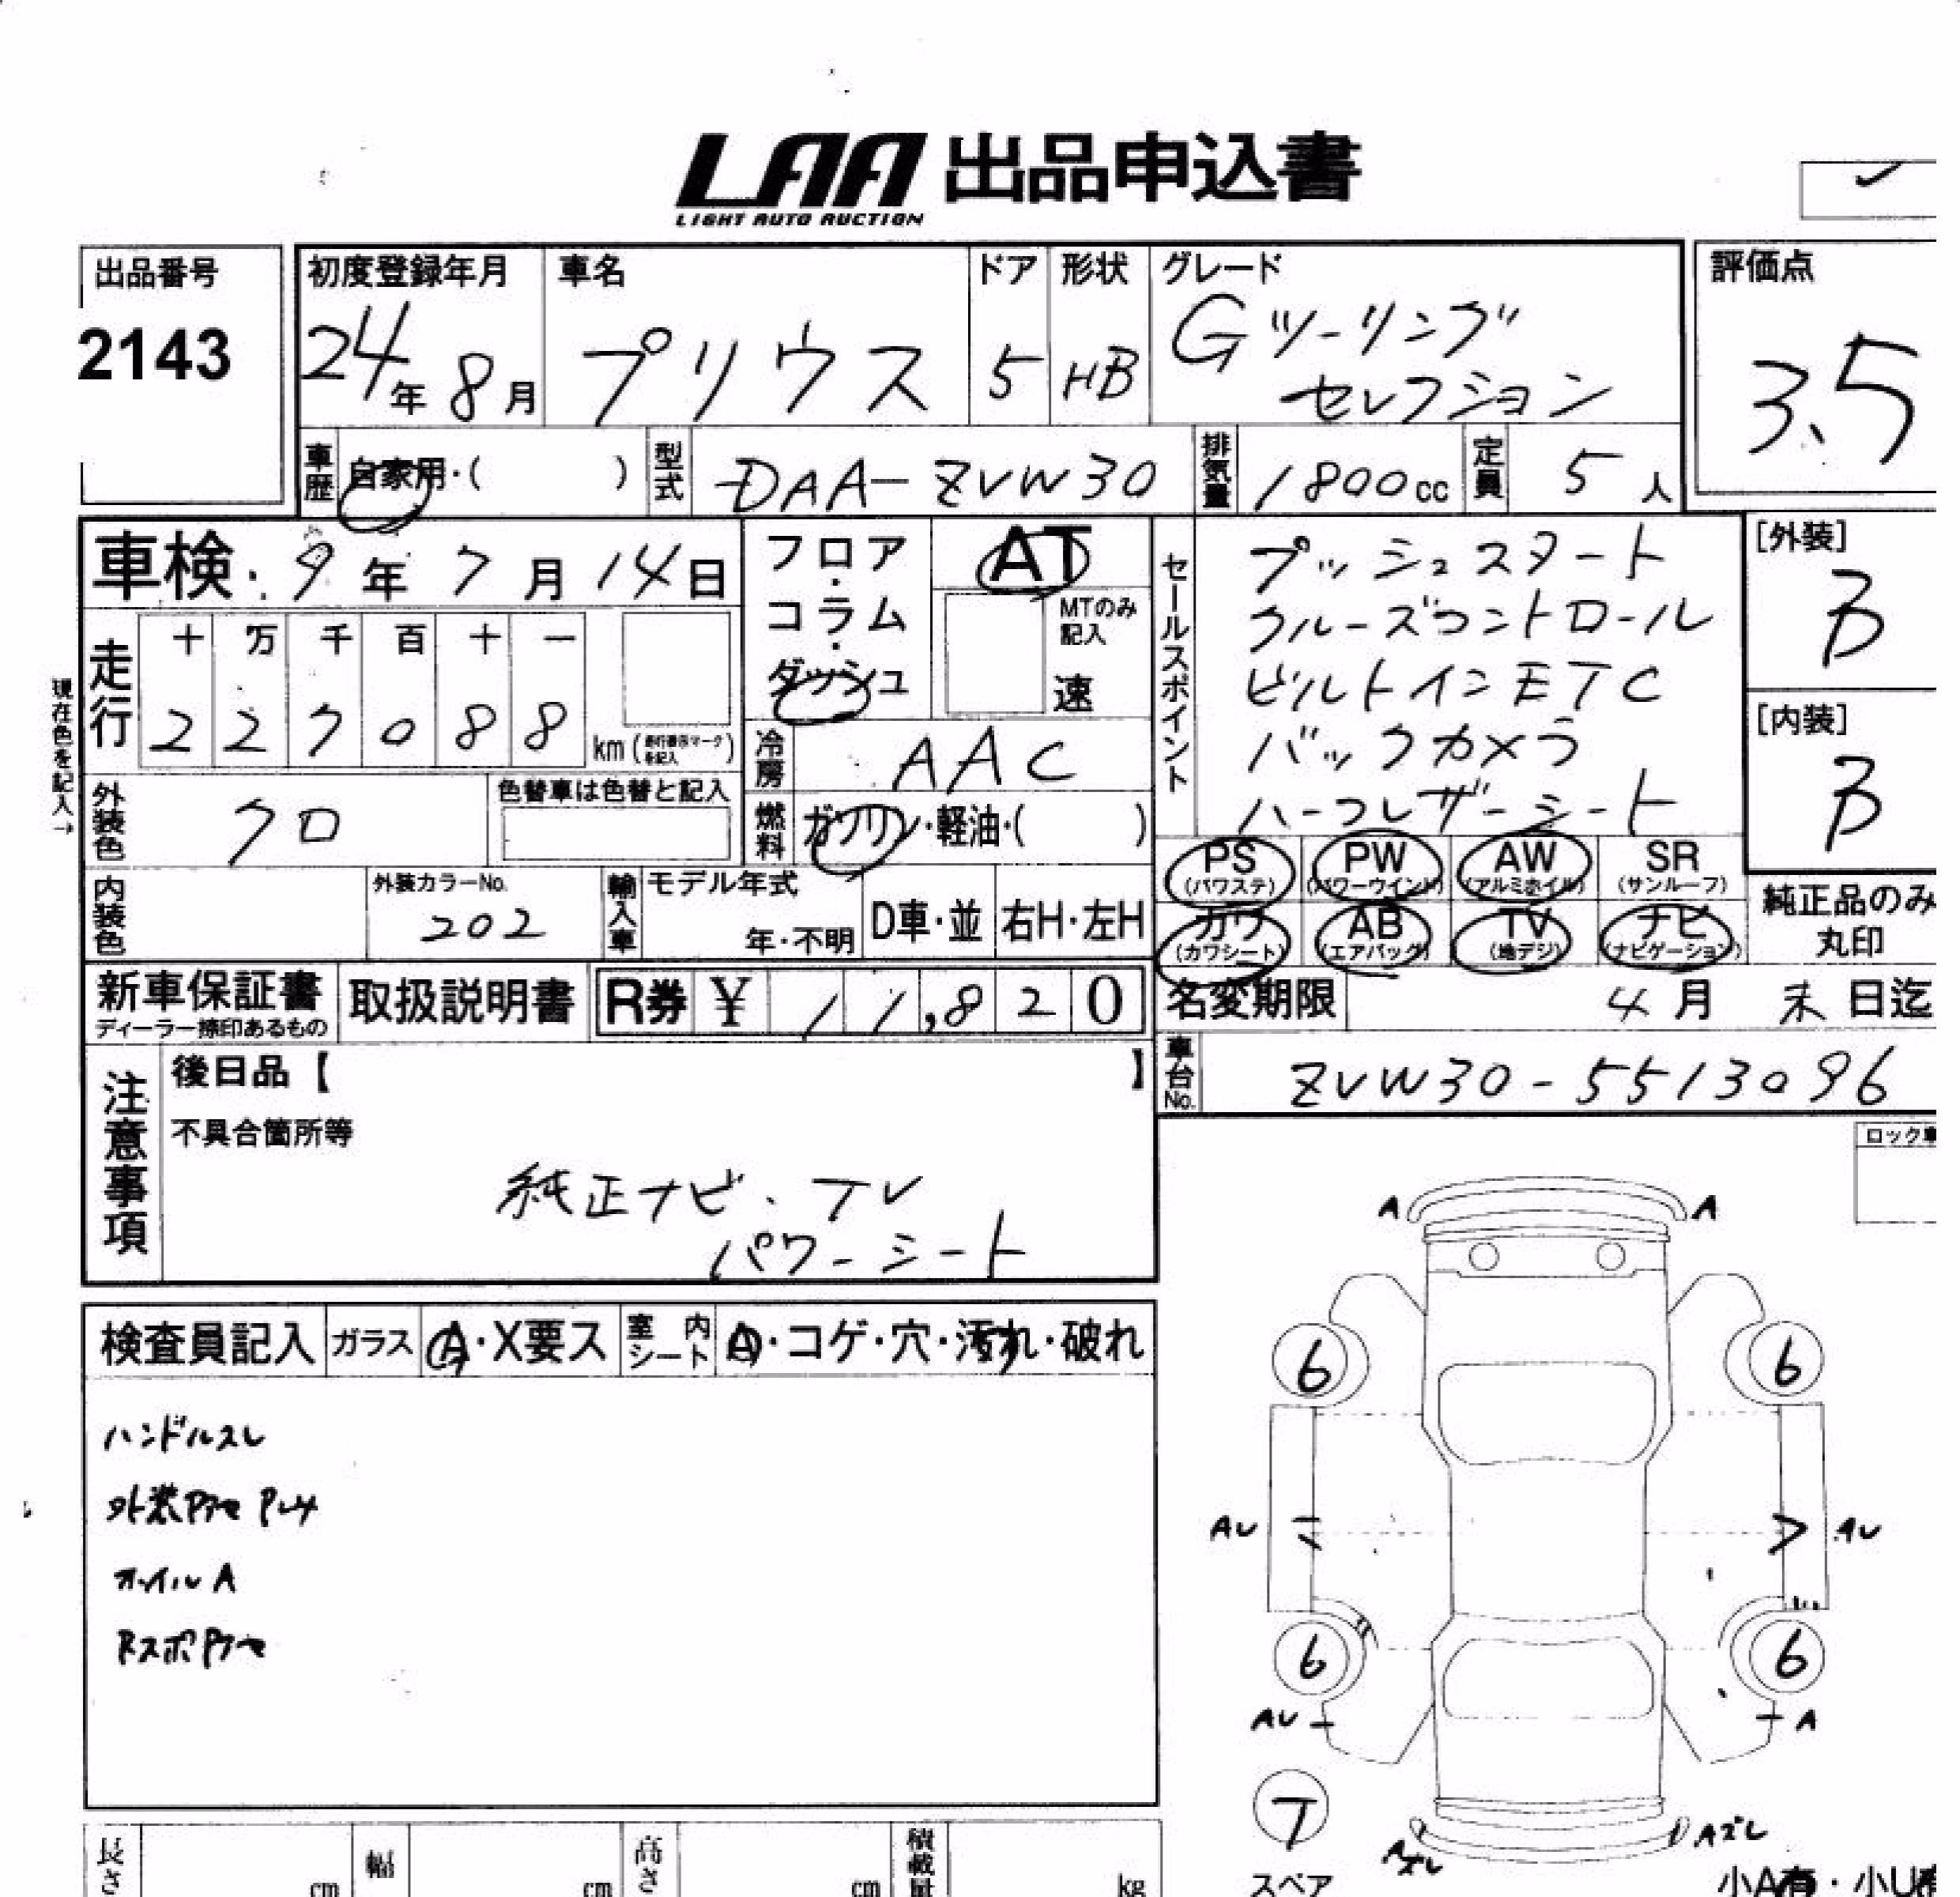 LAA 出品申込書
LIGHT AUTO AUCTION
出品番号
2143
初度登録年月
24年 8月
車名
プリウス
ドア
5
形状
HB
グレード
Gツーリング
セレクション
評価点
3.5
車歴 自家用・( )
型式 DAA-ZVW30
排気量 1800cc
定員 5人
車検 9年 7月 14日
フロア・コラム・ダッシュ
AT
MTのみ記入
速
セールスポイント
プッシュスタート
クルーズコントロール
ビルトインETC
バックカメラ
ハーフレザーシート
[外装]
B
[内装]
B
現在色を記入→
走行
十 万 千 百 十 一
2 2 7 0 8 8 km
冷房 AAC
外装色 クロ
色替車は色替と記入
燃料 ガソリン・軽油・( )
PS (パワステ)
PW (パワーウインド)
AW (アルミホイル)
SR (サンルーフ)
カワ (カワシート)
AB (エアバッグ)
TV (地デジ)
ナビ (ナビゲーション)
純正品のみ
丸印
内装色
外装カラーNo.
202
輸入車
モデル年式
年・不明
D車・並
右H・左H
新車保証書
ディーラー捺印あるもの
取扱説明書
R券 ¥ 11,820
名変期限 4月 末日迄
車台No. ZVW30-5513096
注意事項
後日品【 】
不具合箇所等
純正ナビ・TV
パワーシート
検査員記入
ガラス A・X要ス
室内シート A・コゲ・穴・汚れ・破れ
ハンドルスレ
外装
ホイルA
ロック
A A
6 6
AU AU
6 6
AU A
T
スペア
Aズレ Aズレ
小A有・小U有
長さ cm
幅 cm
高さ cm
積載量 kg